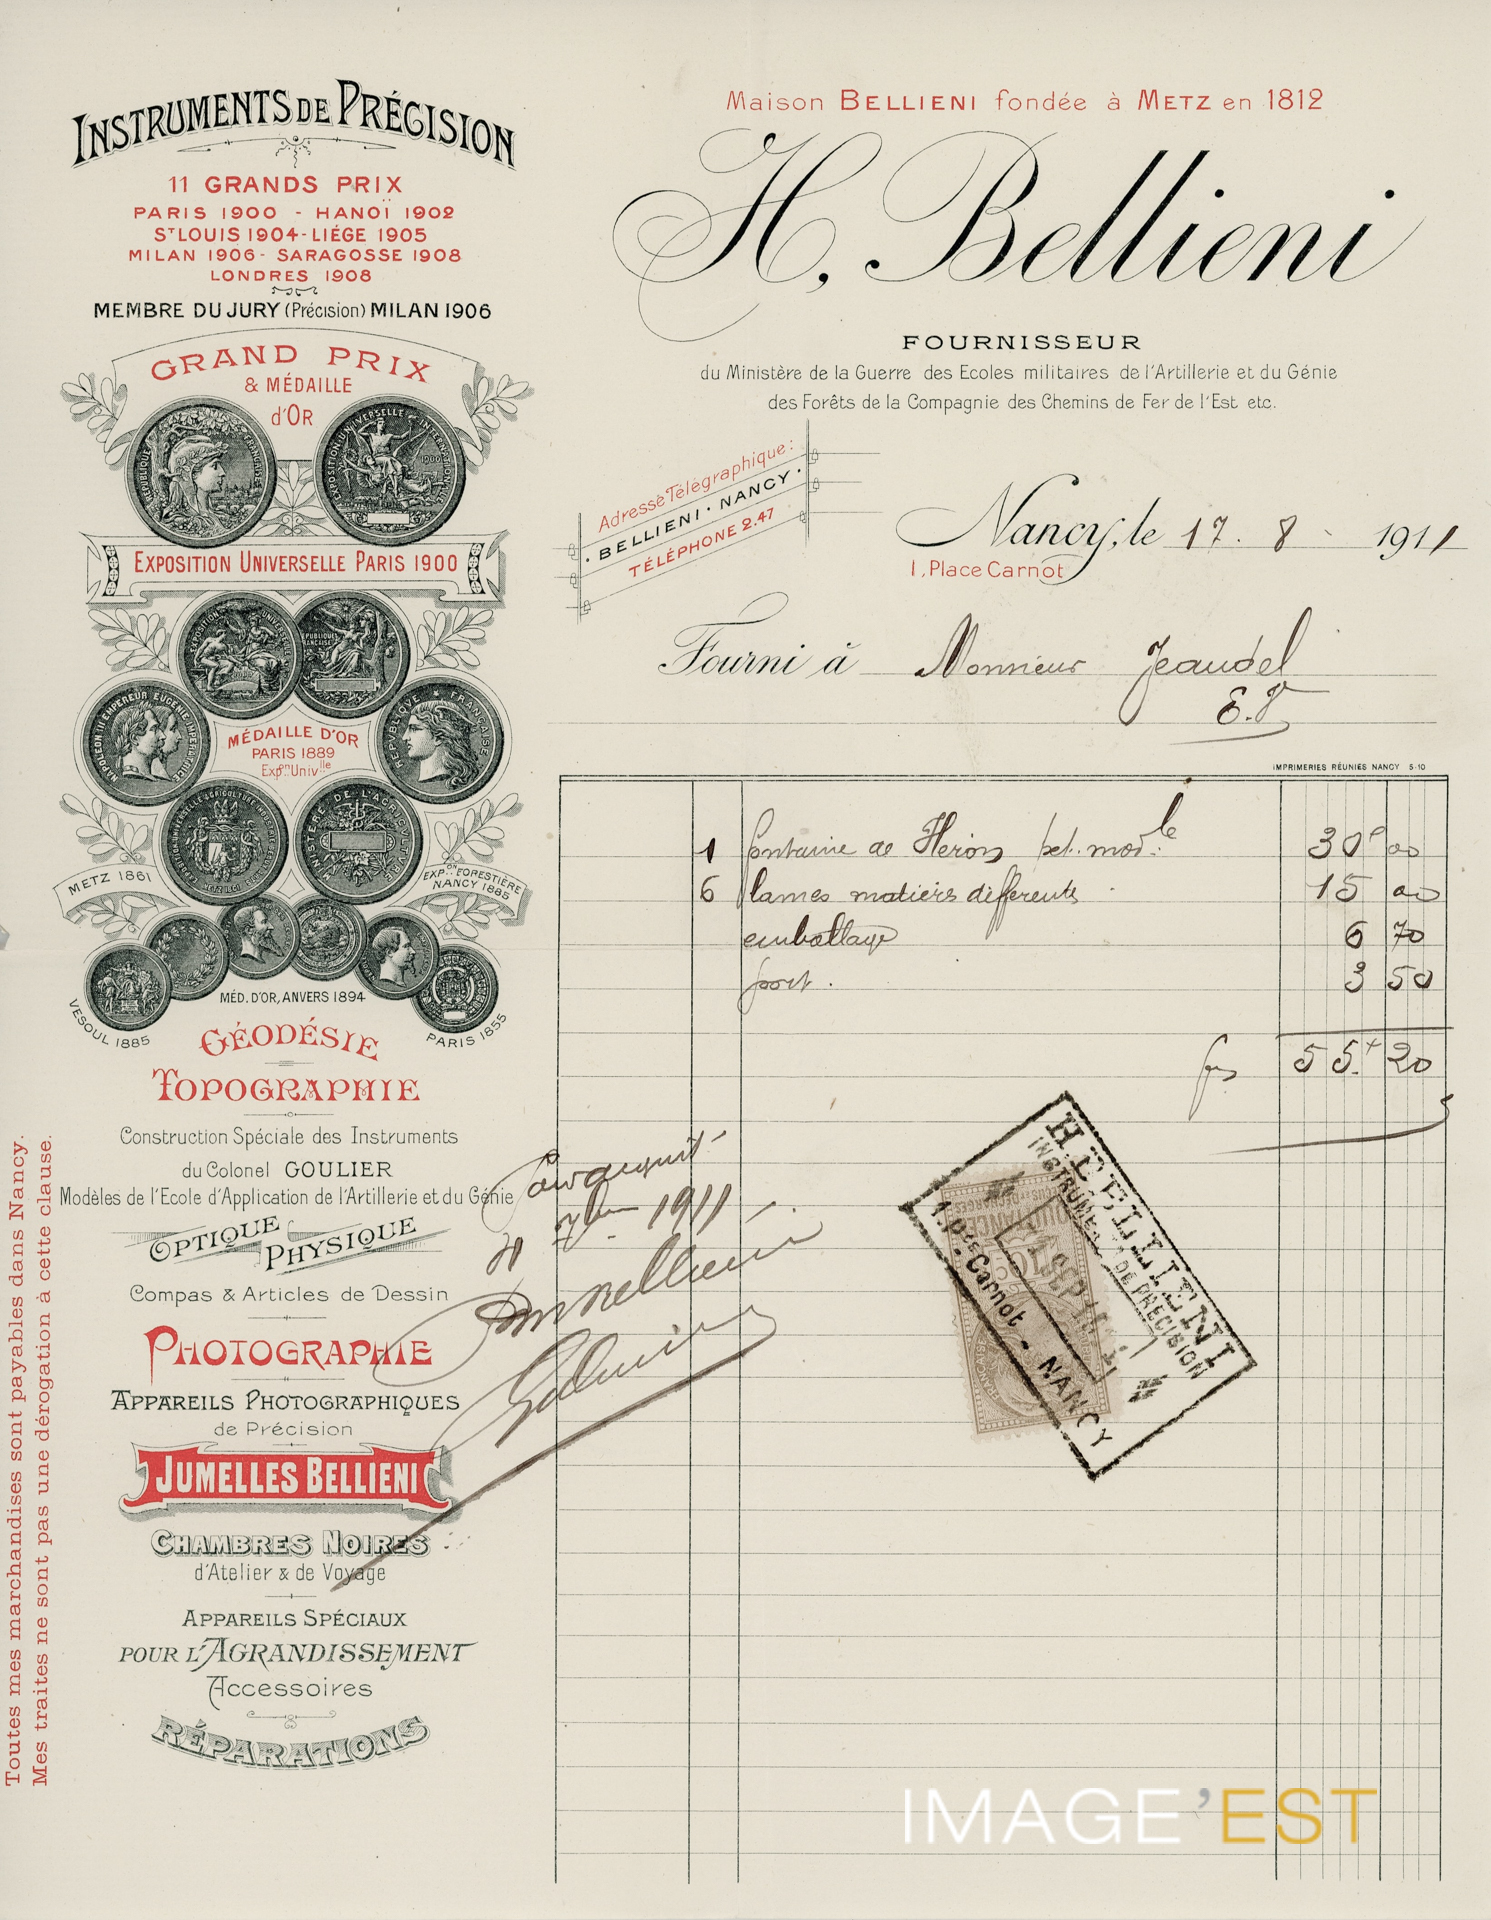 INSTRUMENTS DE PRÉCISION
11 GRANDS PRIX
PARIS 1900 - HANOÏ 1902
ST LOUIS 1904 - LIÉGE 1905
MILAN 1906 - SARAGOSSE 1908
LONDRES 1908
MEMBRE DU JURY (Précision) MILAN 1906
GRAND PRIX
& MÉDAILLE
d'OR
RÉPUBLIQUE FRANÇAISE
EXPOSITION UNIVERSELLE INTERNATIONALE
1900
EXPOSITION UNIVERSELLE PARIS 1900
NAPOLEON III EMPEREUR EUGENIE IMPERATRICE
RÉPUBLIQUE FRANÇAISE
MÉDAILLE D'OR
PARIS 1889
Expon Univlle
MINISTÈRE DE L'AGRICULTURE
METZ 1861
EXPon FORESTIÈRE
NANCY 1885
MÉD. D'OR, ANVERS 1894
VESOUL 1885
PARIS 1855
GÉODÉSIE
TOPOGRAPHIE
Construction Spéciale des Instruments
du Colonel GOULIER
Modèles de l'Ecole d'Application de l'Artillerie et du Génie
OPTIQUE
PHYSIQUE
Compas & Articles de Dessin
PHOTOGRAPHIE
APPAREILS PHOTOGRAPHIQUES
de Précision
JUMELLES BELLIENI
CHAMBRES NOIRES
d'Atelier & de Voyage
APPAREILS SPÉCIAUX
POUR L'AGRANDISSEMENT
Accessoires
RÉPARATIONS
Toutes mes marchandises sont payables dans Nancy.
Mes traites ne sont pas une dérogation à cette clause.
Maison BELLIENI fondée à METZ en 1812
H. Bellieni
FOURNISSEUR
du Ministère de la Guerre des Ecoles militaires de l'Artillerie et du Génie
des Forêts de la Compagnie des Chemins de Fer de l'Est etc.
Adresse Télégraphique:
· BELLIENI · NANCY ·
TÉLÉPHONE 2.47
Nancy, le 17. 8 - 1911
1, Place Carnot
Fourni à Monsieur Jeaudel
E.V
IMPRIMERIES RÉUNIES NANCY 5-10
1 fontaine de Héron pet. modle 30f 00
6 lames matières différents 15 00
emballage 6 70
port. 3 50
frs 55 20
Pour acquit
1911
H. BELLIENI
INSTRUMENTS DE PRÉCISION
1. Pce Carnot - NANCY
QUITTANCES
10c
1 SEPT 1911
IMAGE'EST